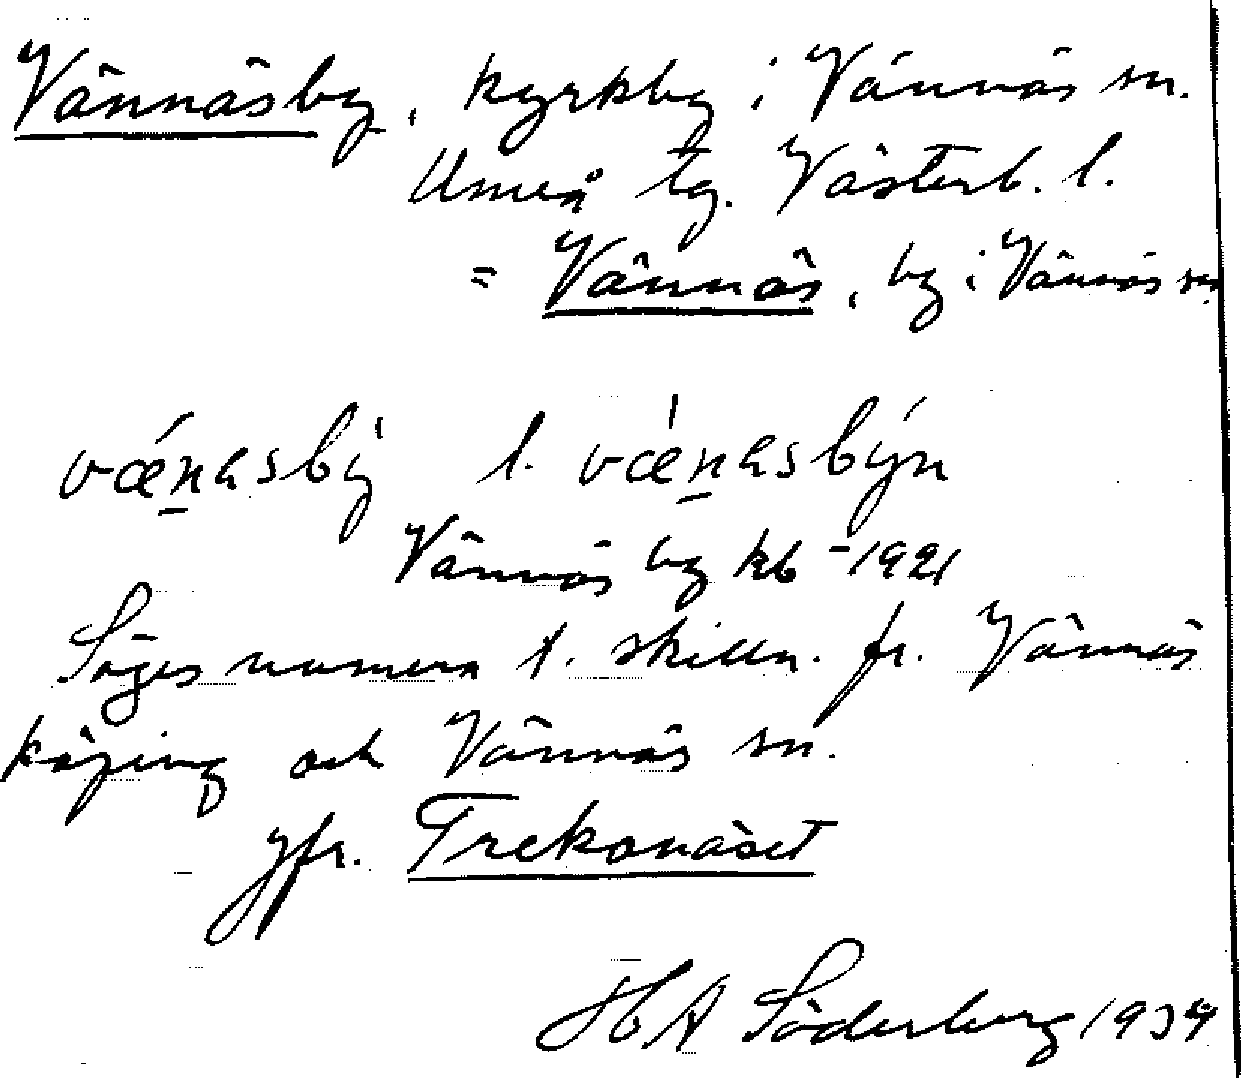 Vännäsby, kyrkby i Vännäs sn.
Umeå tg. Västerb. l.
= Vännäs, by i Vännäs sn
l.
Vännäs by kb -1921
Säges numera t. skilln. fr. Vännäs
köping och Vännäs sn.
jfr. Trekonäset
H A Söderberg 1934